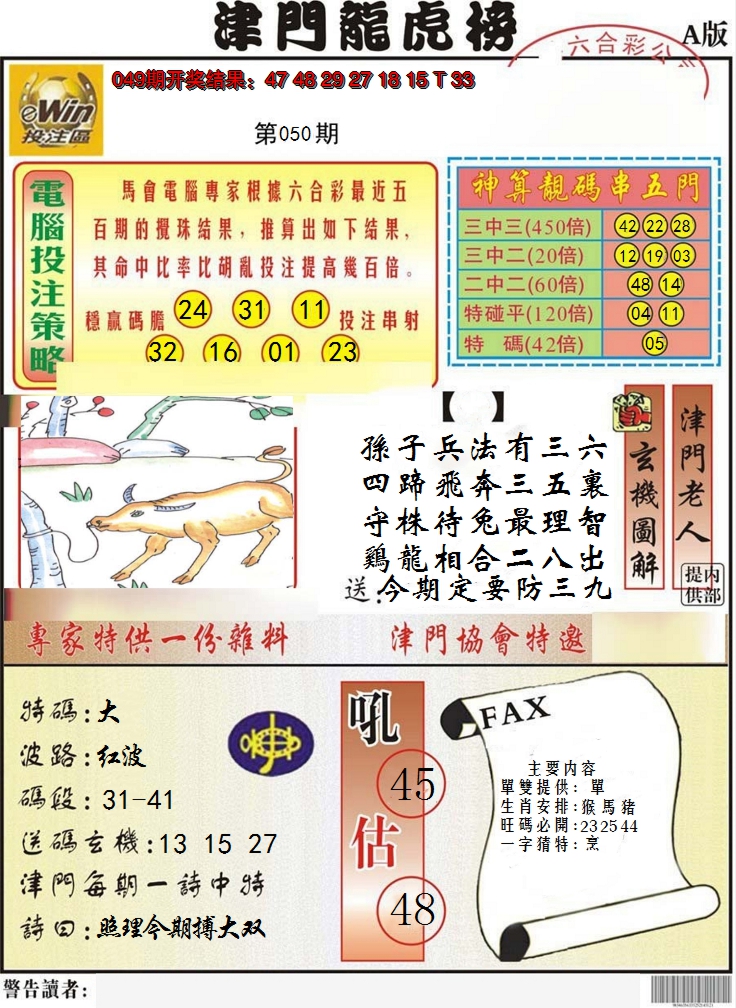 津門龍虎榜
A版
六合彩公
eWin
投注區
049期开奖结果：47 48 29 27 18 15 T 33
第050期
電腦投注策略
馬會電腦專家根據六合彩最近五
百期的攪珠结果，推算出如下结果，
其命中比率比胡亂投注提高幾百倍。
穩贏碼膽 24 31 11 投注串射
32 16 01 23
神算靚碼串五門
三中三(450倍) 42 22 28
三中二(20倍) 12 19 03
二中二(60倍) 48 14
特碰平(120倍) 04 11
特 碼(42倍) 05
【 】
孫子兵法有三六
四蹄飛奔三五裏
守株待兔最理智
鷄龍相合二八出
送：今期定要防三九
玄機圖解
津門老人
内部提供
專家特供一份雜料
津門協會特邀
特碼：大
波路：红波
碼段：31-41
送碼玄機：13 15 27
津門每期一詩中特
詩曰：照理今期搏大双
吼
45
估
48
FAX
主要内容
單雙提供：單
生肖安排：猴馬豬
旺碼必開：232544
一字猜特：烹
警告讀者：